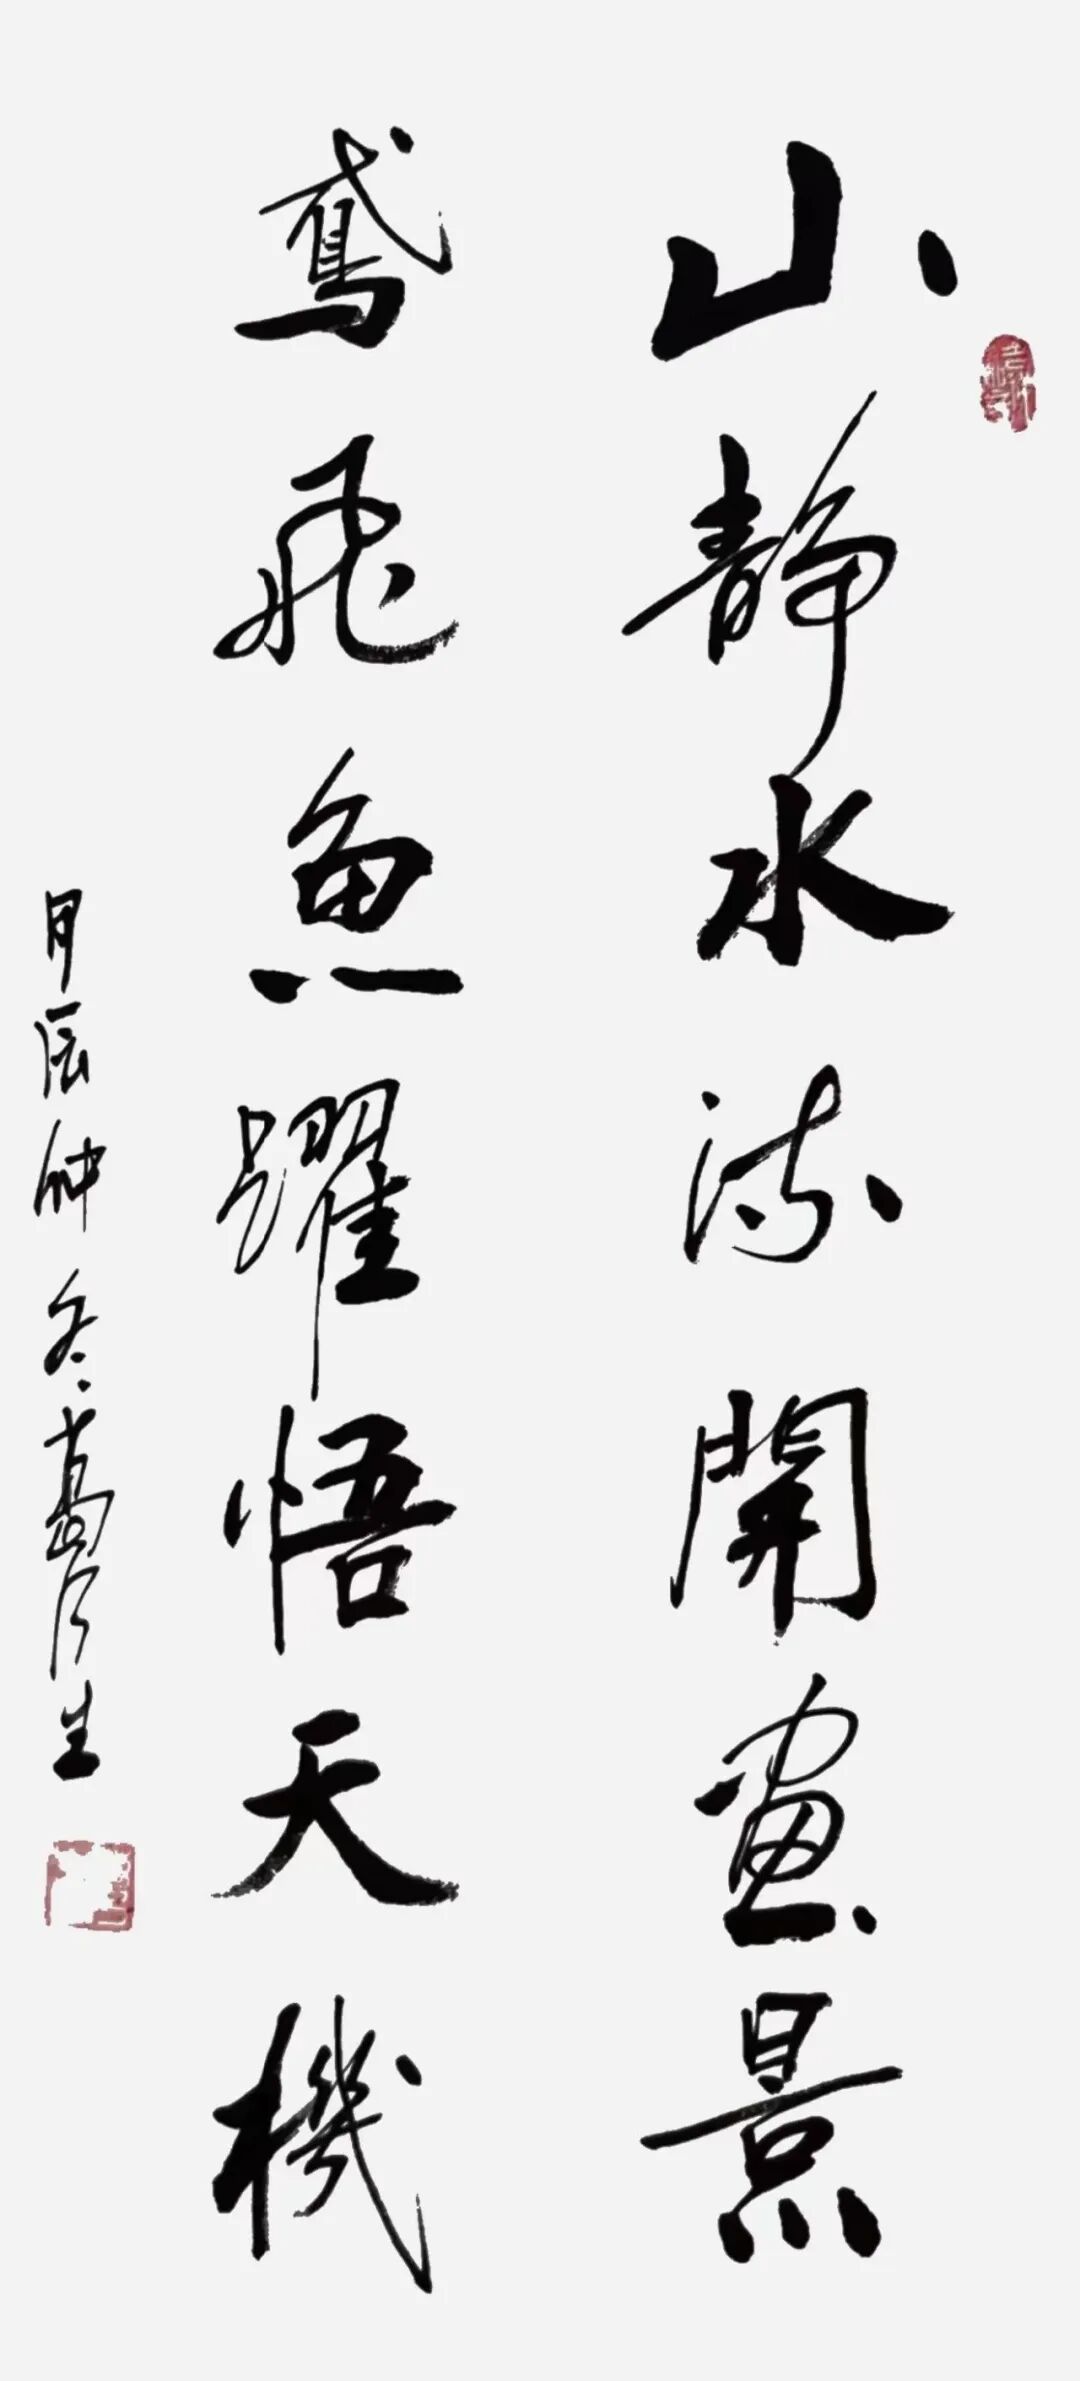 山静水流開畫景
鳶飛魚躍悟天機
甲辰仲冬 生